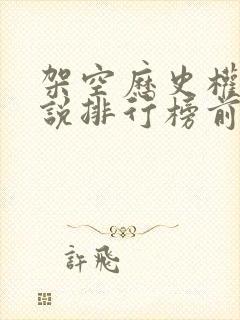 架空歷史權
說排行榜前
許飛